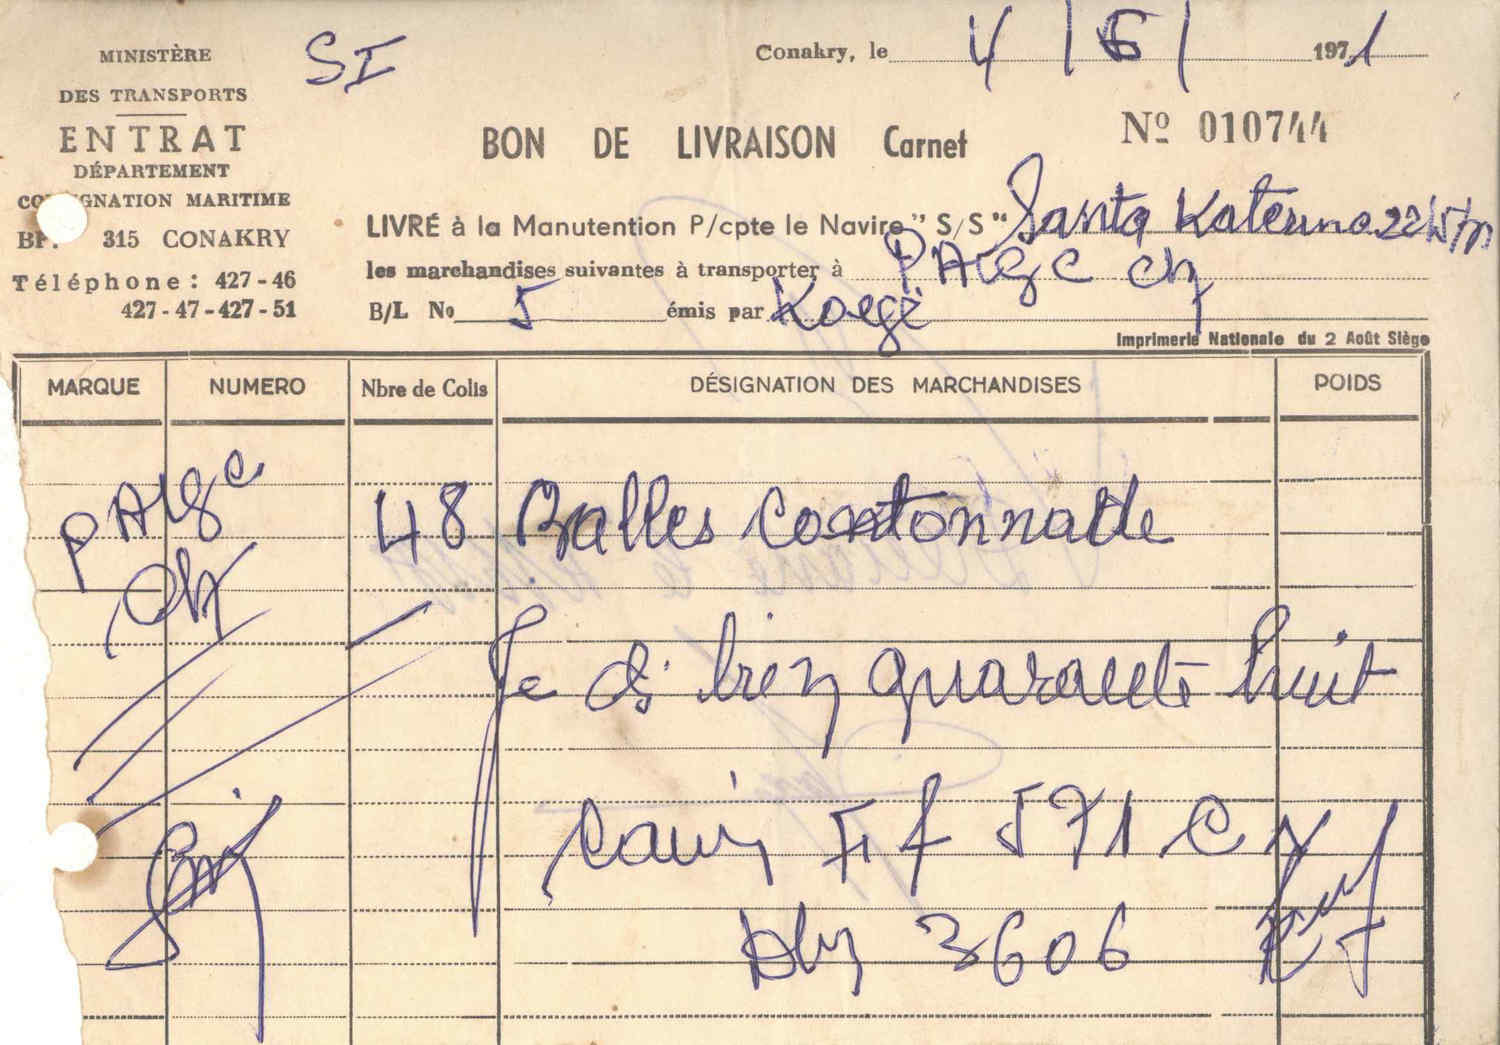 MINISTÈRE
DES TRANSPORTS
ENTRAT
DÉPARTEMENT
CONSIGNATION MARITIME
BP. 315 CONAKRY
Téléphone : 427-46
427-47-427-51
SI
Conakry, le 4/6/ 1971
BON DE LIVRAISON Carnet
Nº 010744
LIVRÉ à la Manutention P/cpte le Navire " S/S " Santa Katerina 22
les marchandises suivantes à transporter à PAIGC
B/L No 5 émis par
Imprimerie Nationale du 2 Août Siège
MARQUE NUMERO Nbre de Colis DÉSIGNATION DES MARCHANDISES POIDS
PAIGC 48 Balles contonnade
Je dis bien quarante huit
571 C
3606